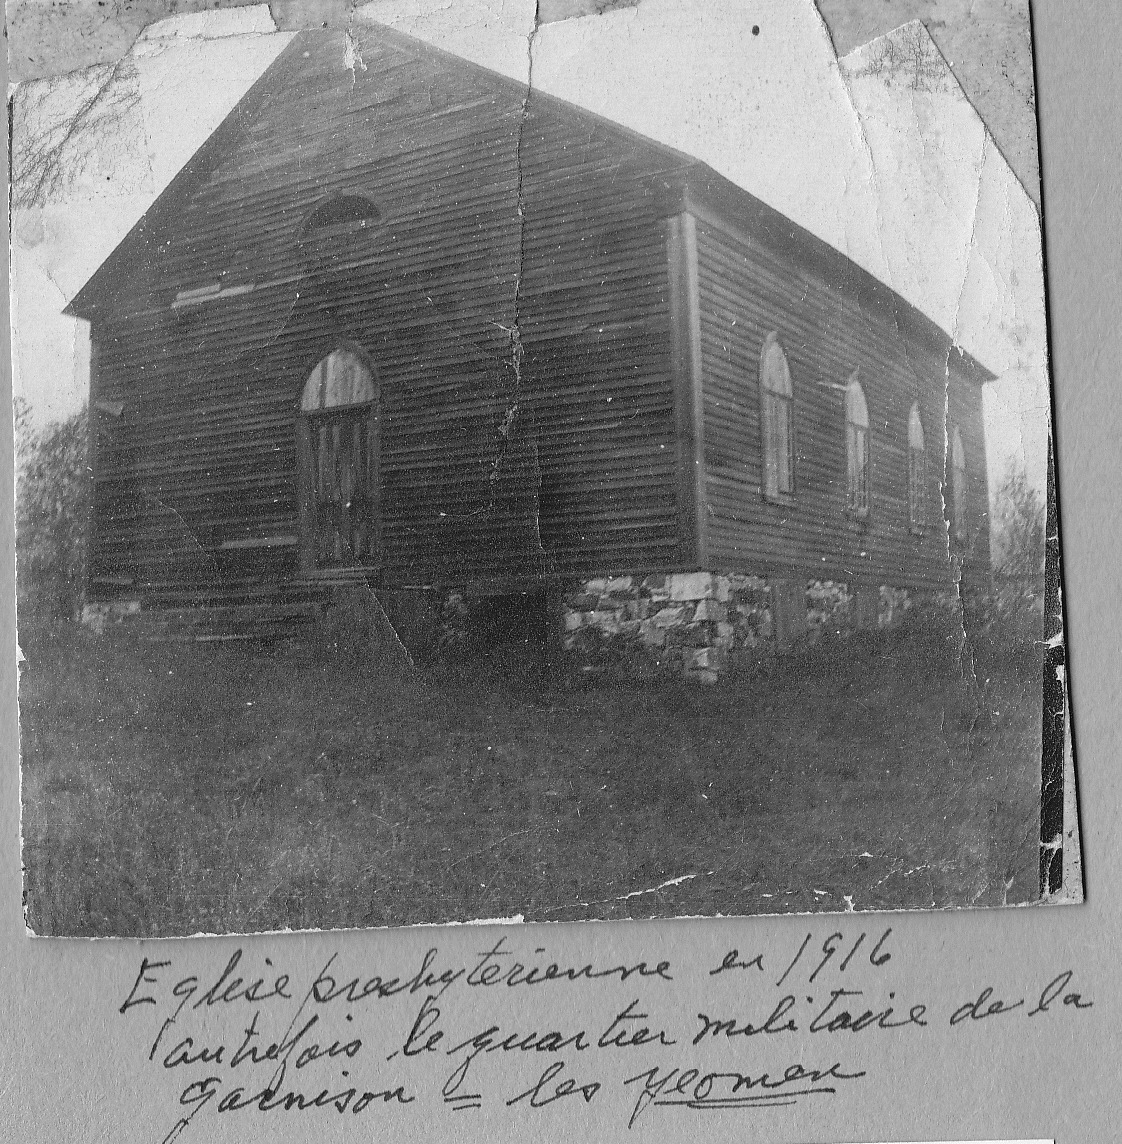 Eglise presbyterienne en 1916
autrefois le quartier militaire de la
Garnison = les Yeomen